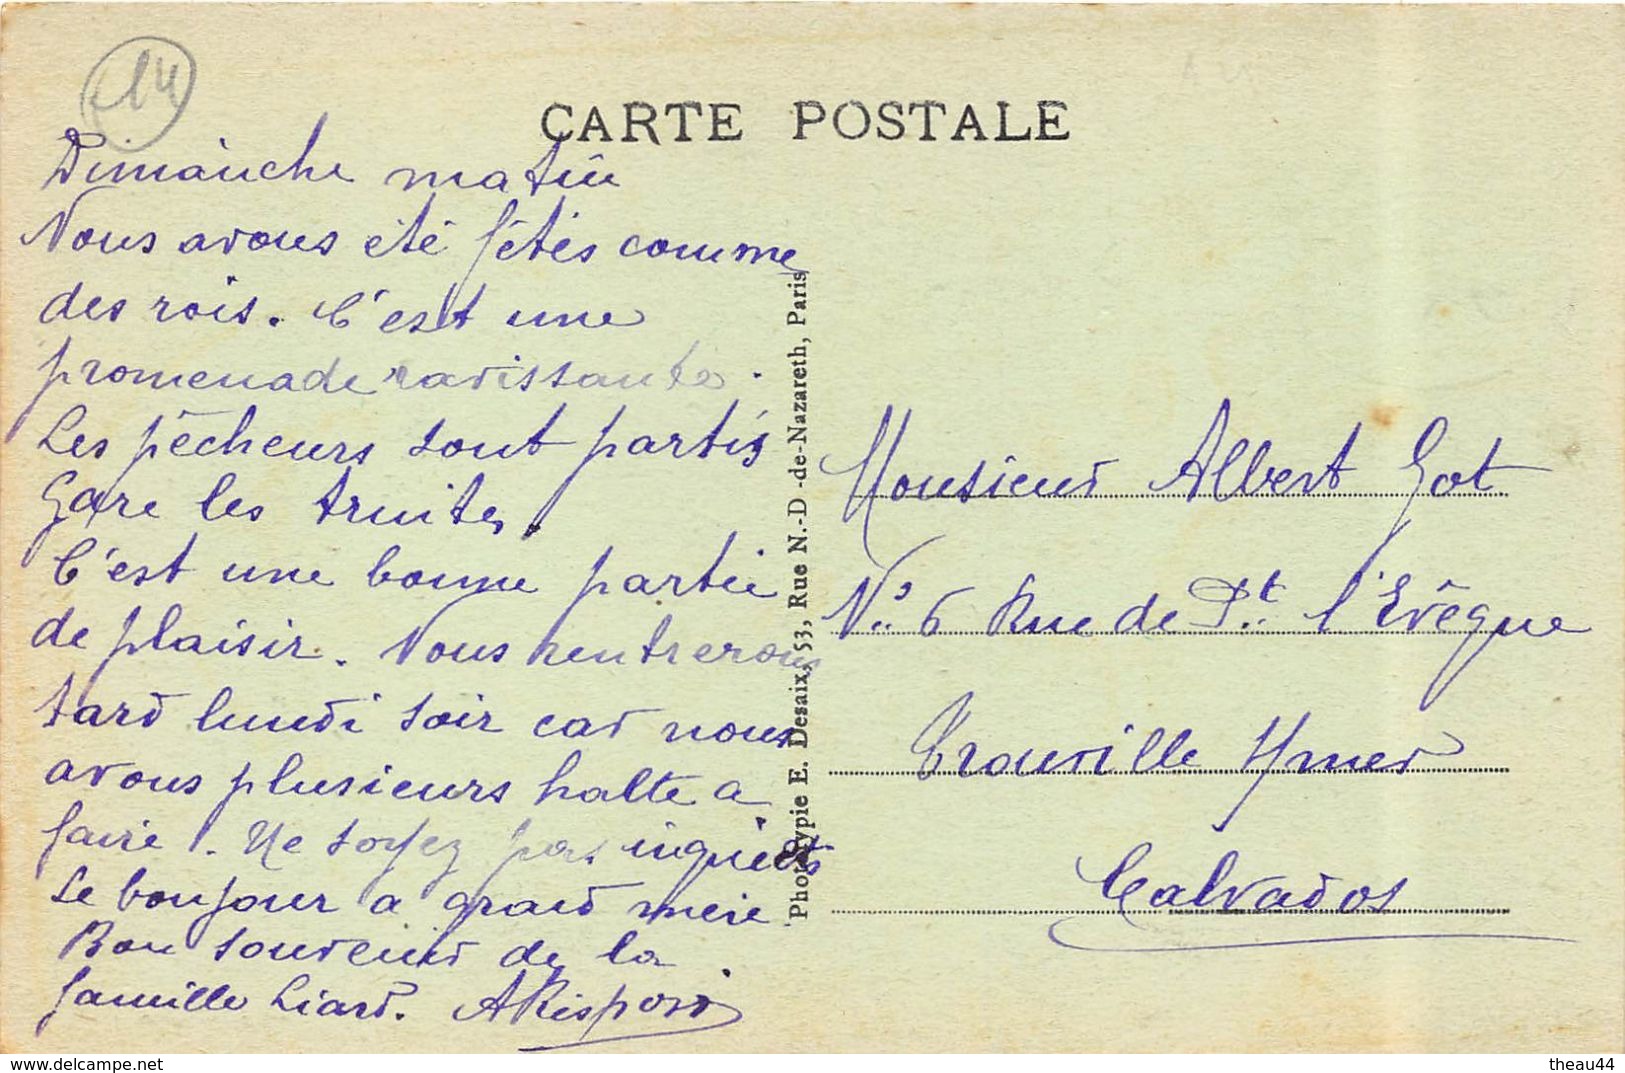 14
CARTE POSTALE
Dimanche matin
Nous avons été fêtés comme
des rois. C'est une
promenade ravissante.
Les pêcheurs sont partis
Gare les truites.
C'est une bonne partie
de plaisir. Nous rentrerons
tard lundi soir car nous
avons plusieurs halte a
faire. Ne soyez pas inquiets
Le bonjour a grand mère
Bon souvenir de la
famille Liard.
Phototypie E. Desaix, 53, Rue N.-D-de-Nazareth, Paris
Monsieur Albert Got
No 6 Rue de Pt l'Evêque
Trouville s/mer
Calvados
www.delcampe.net
theau44